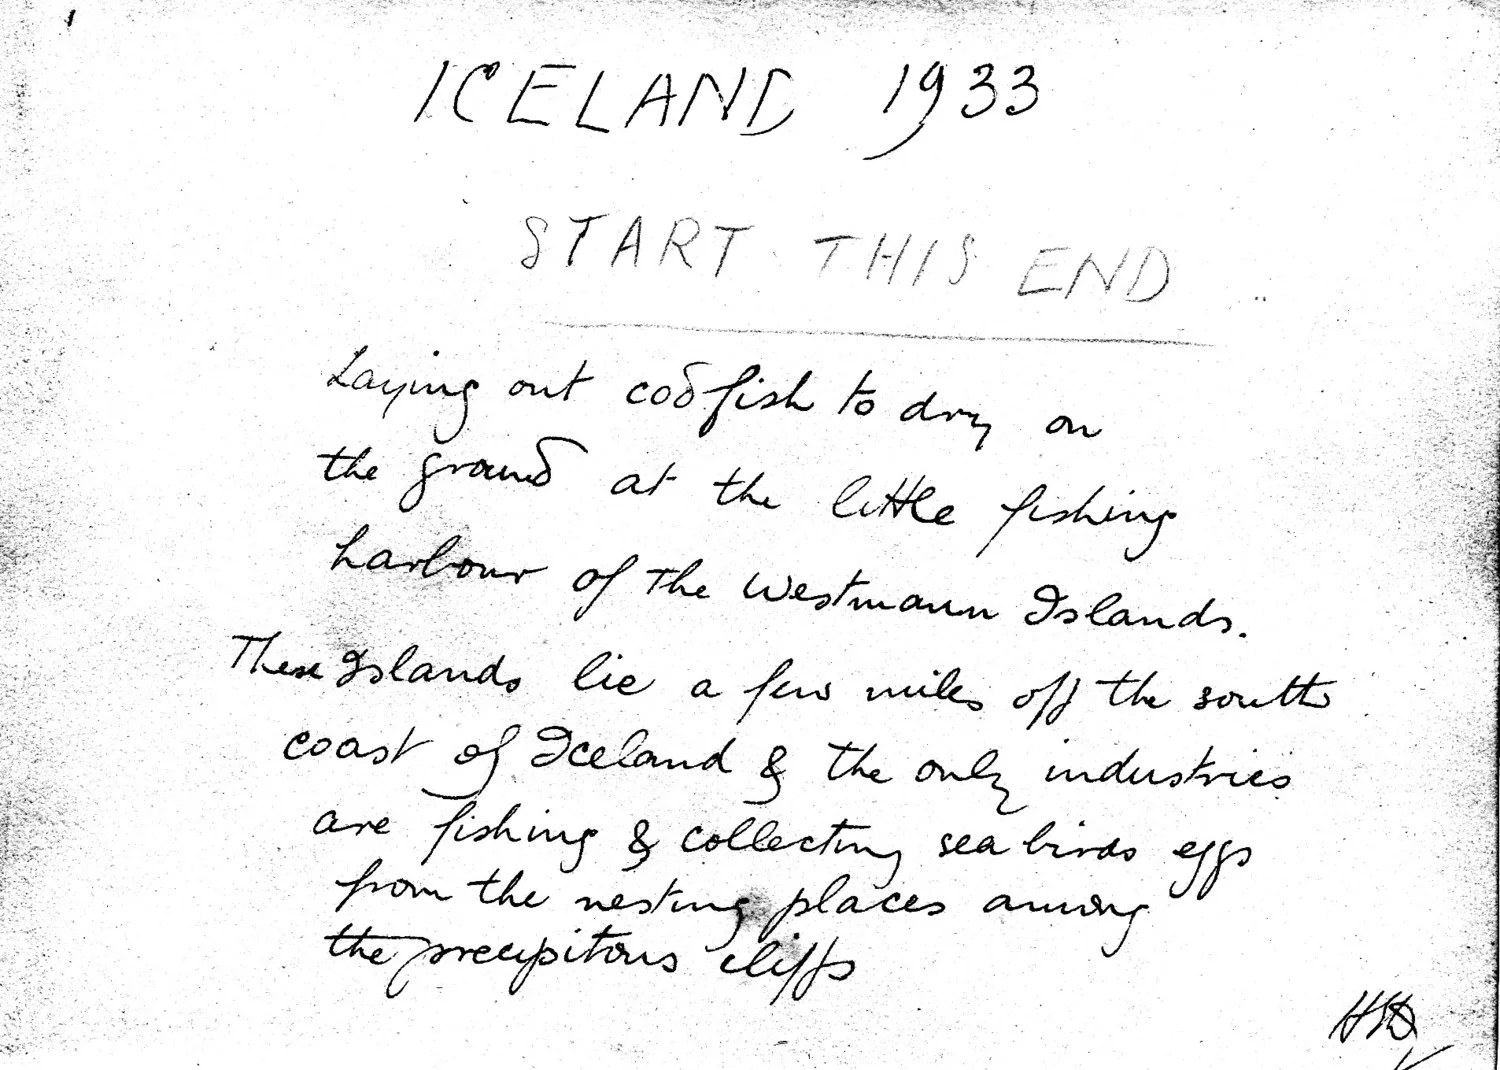 ICELAND 1933
START THIS END
Laying out codfish to dry on
the ground at the little fishing
harbour of the Westmann Islands.
These Islands lie a few miles off the south
coast of Iceland & the only industries
are fishing & collecting sea birds eggs
from the nesting places among
the precipitous cliffs